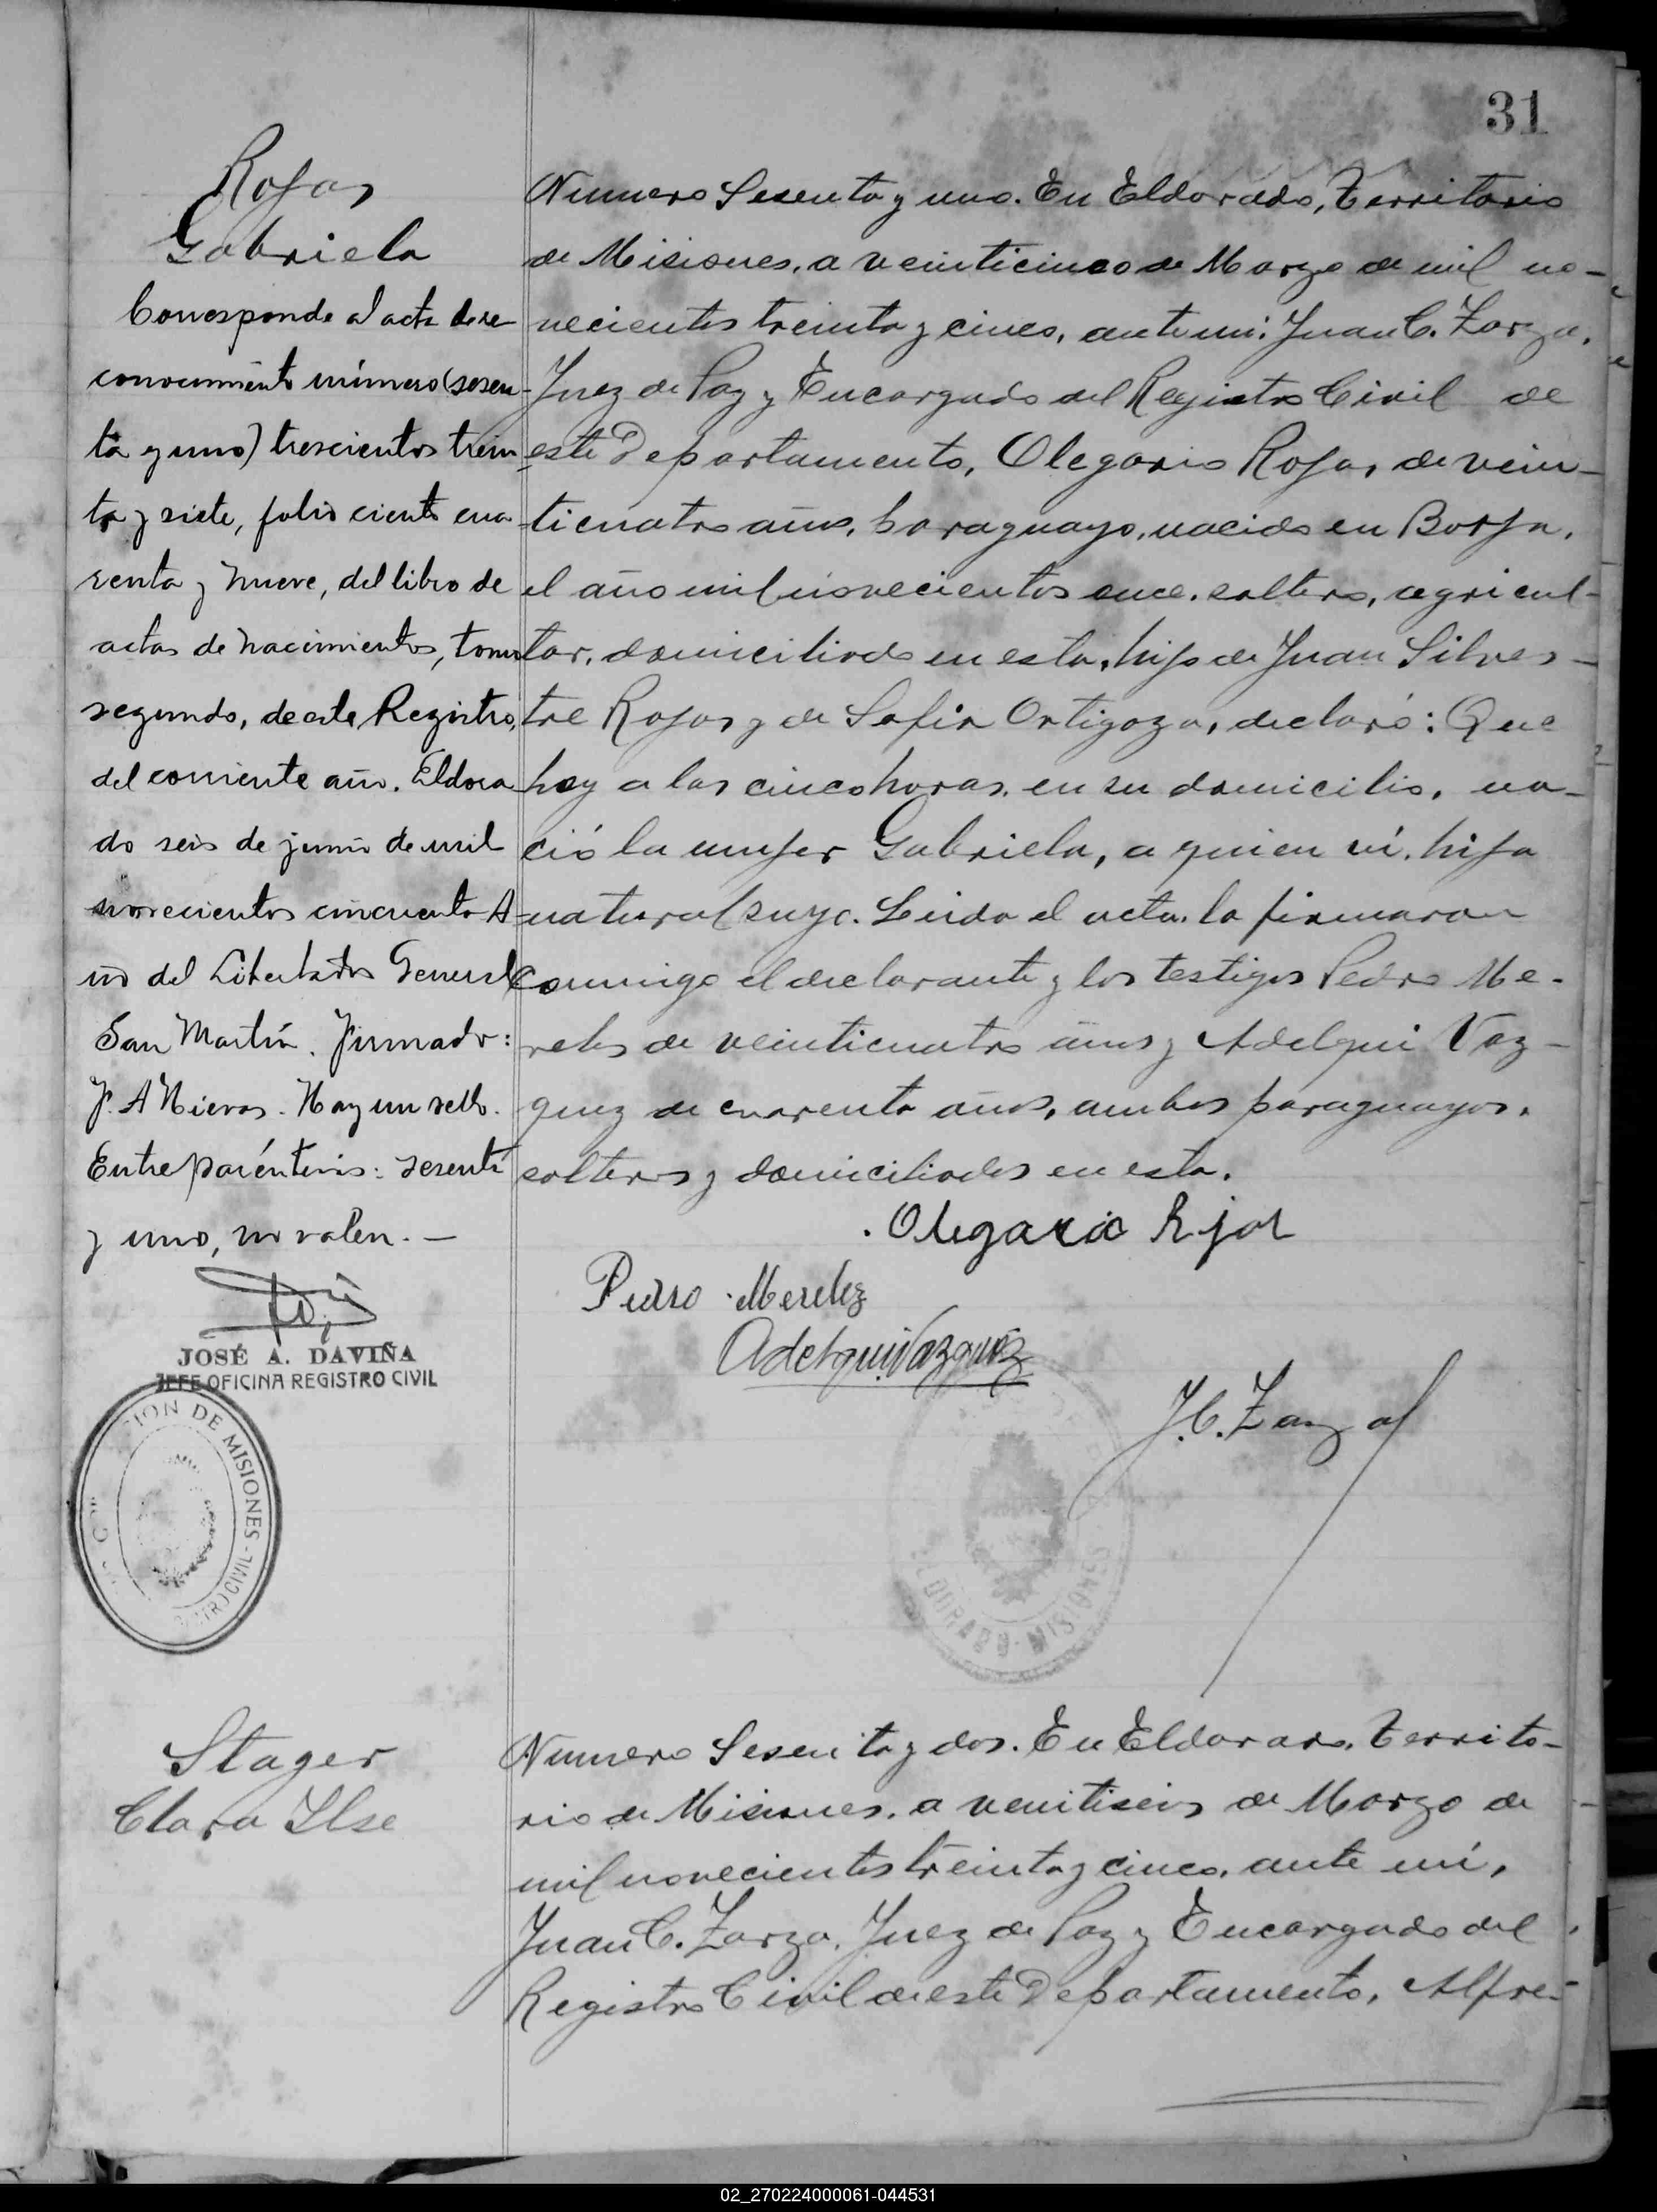 31
Rojas
Gabriela
Corresponde al acta de re
conocimiento número (sesen-
ta y uno) trescientos trein
ta y siete, folio ciento cua
renta y nueve, del libro de
actas de nacimientos, tomo
segundo, de este Registro,
del corriente año. Eldora
do seis de junio de mil
novecientos cincuenta A
ño del Libertador General
San Martín. Firmado:
J. A Nieves. Hay un sello.
Entre paréntesis: sesenta
y uno, no valen. —
JOSÉ A. DAVIÑA
JEFE OFICINA REGISTRO CIVIL
CION DE MISIONES - REGISTRO CIVIL
Numero Sesenta y uno. En Eldorado, Territorio
de Misiones, a veinticinco de Marzo de mil no-
vecientos treinta y cinco, ante mi: Juan C. Zarza,
Juez de Paz y Encargado del Registro Civil de
este Departamento, Olegario Rojas, de vein-
ticuatro años, paraguayo, nacido en Borja,
el año mil novecientos once, soltero, agricul-
tor, domiciliado en esta, hijo de Juan Silves-
tre Rojas y de Sofia Ortigoza, declaró: Que
hoy a las cinco horas, en su domicilio, na-
ció la mujer Gabriela, a quien ví, hija
natural suya. Leida el acta, la firmaron
conmigo el declarante y los testigos Pedro Me-
reles de veinticuatro años y Adelqui Vaz-
quez de cuarenta años, ambos paraguayos,
solteros y domiciliados en esta.
Olegario Rjas
Pedro Merelez
Adelqui Vazquez
J. C. Zarza
ELDORADO - MISIONES
Stager
Clara Ilse
Numero Sesenta y dos. En Eldorado, Territo-
rio de Misiones, a veintiseis de Marzo de
mil novecientos treinta y cinco, ante mí,
Juan C. Zarza, Juez de Paz y Encargado del
Registro Civil de este Departamento, Alfre-
02_270224000061-044531